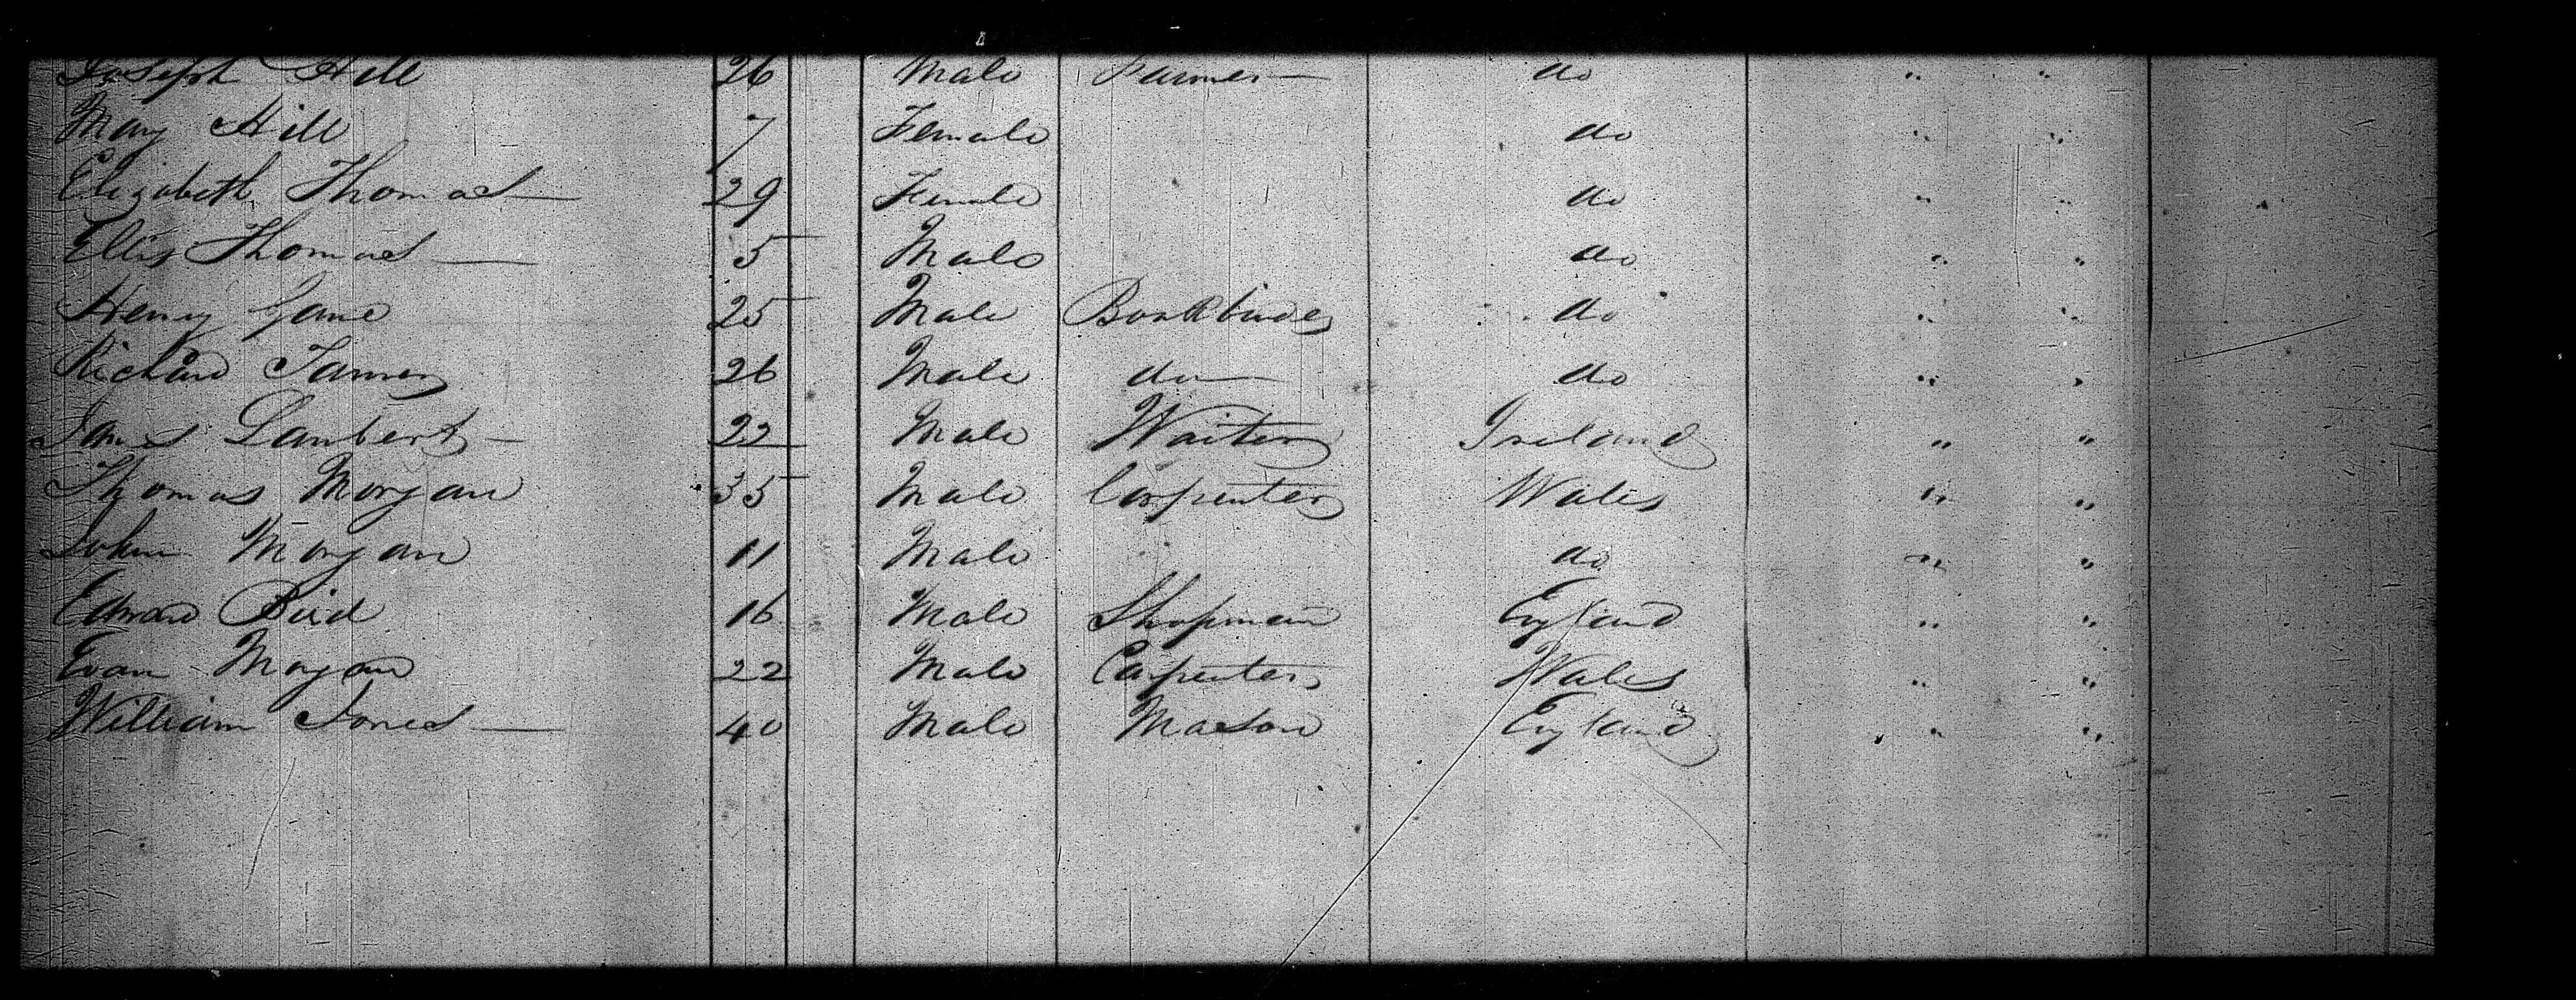 Joseph Hill 26 Male Farmer do " "
Mary Hill 7 Female do " "
Elizabeth Thomas 29 Female do " "
Ellis Thomas 5 Male do " "
Henry Jane 25 Male Bookbinder do " "
Richard Tanner 26 Male do do " "
James Lambert 22 Male Waiter Ireland " "
Thomas Morgan 35 Male Carpenter Wales " "
John Morgan 11 Male do " "
Edward Bird 16 Male Shopman England " "
Evan Morgan 22 Male Carpenter Wales " "
William Jones 40 Male Mason England " "